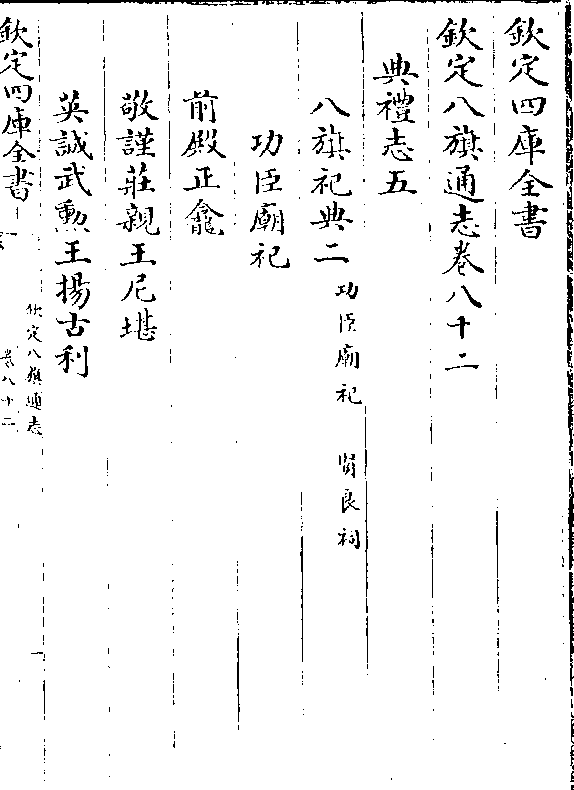 欽定四庫全書
欽定八旗通志卷八十二
典禮志五
八旗祀典二 功臣廟祀 賢良祠
功臣廟祀
前殿正龕
敬謹莊親王尼堪
英誠武勲王揚古利
欽定八旗通志
卷八十二
一
欽定四庫全書